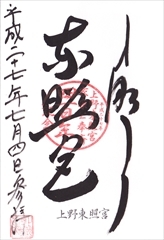 上野
東照宮
平成二十七年七月四日参拝
上野東照宮